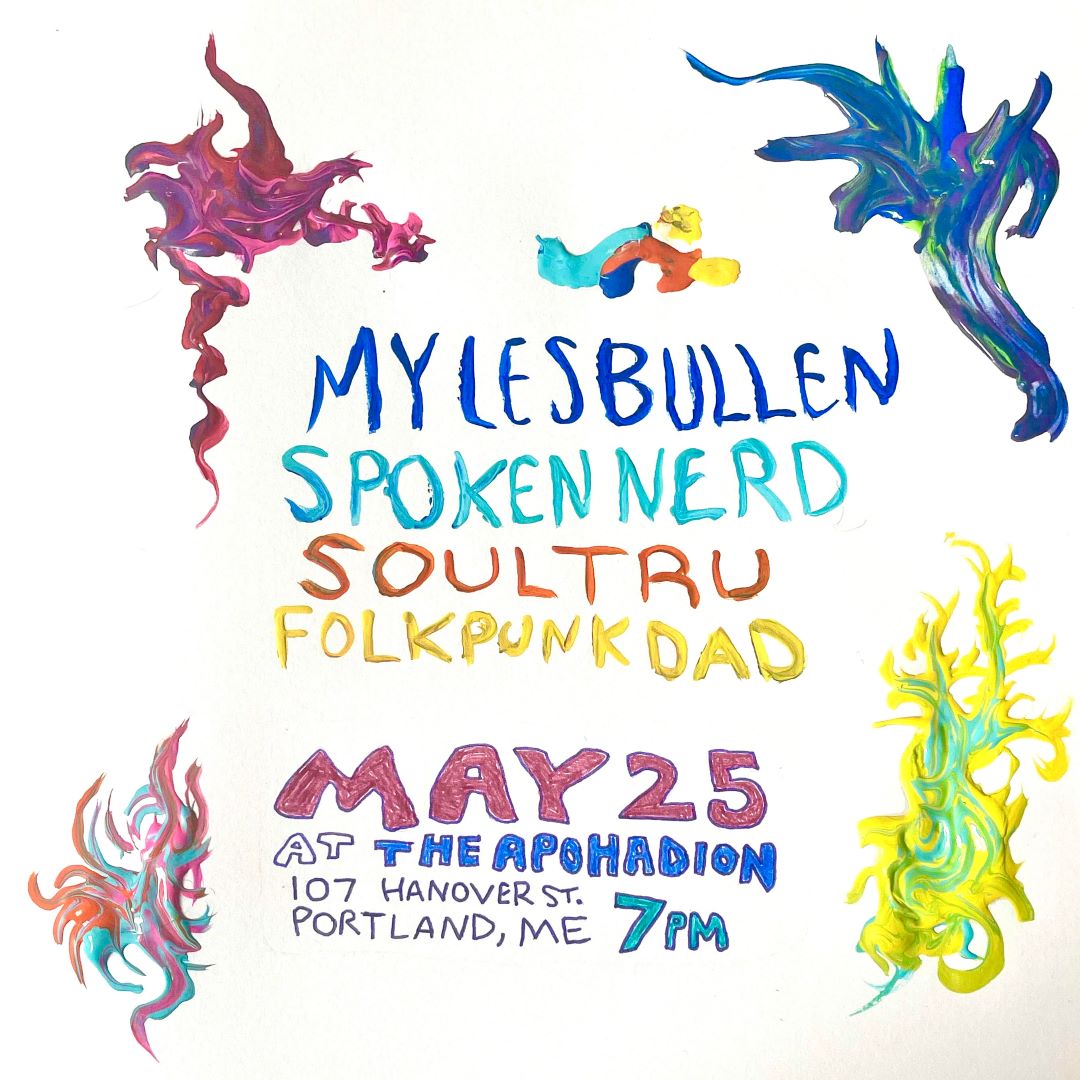 MYLESBULLEN
SPOKEN NERD
SOULTRU
FOLKPUNK DAD
MAY 25
AT THE APOHADION
107 HANOVER ST.
PORTLAND, ME 7PM